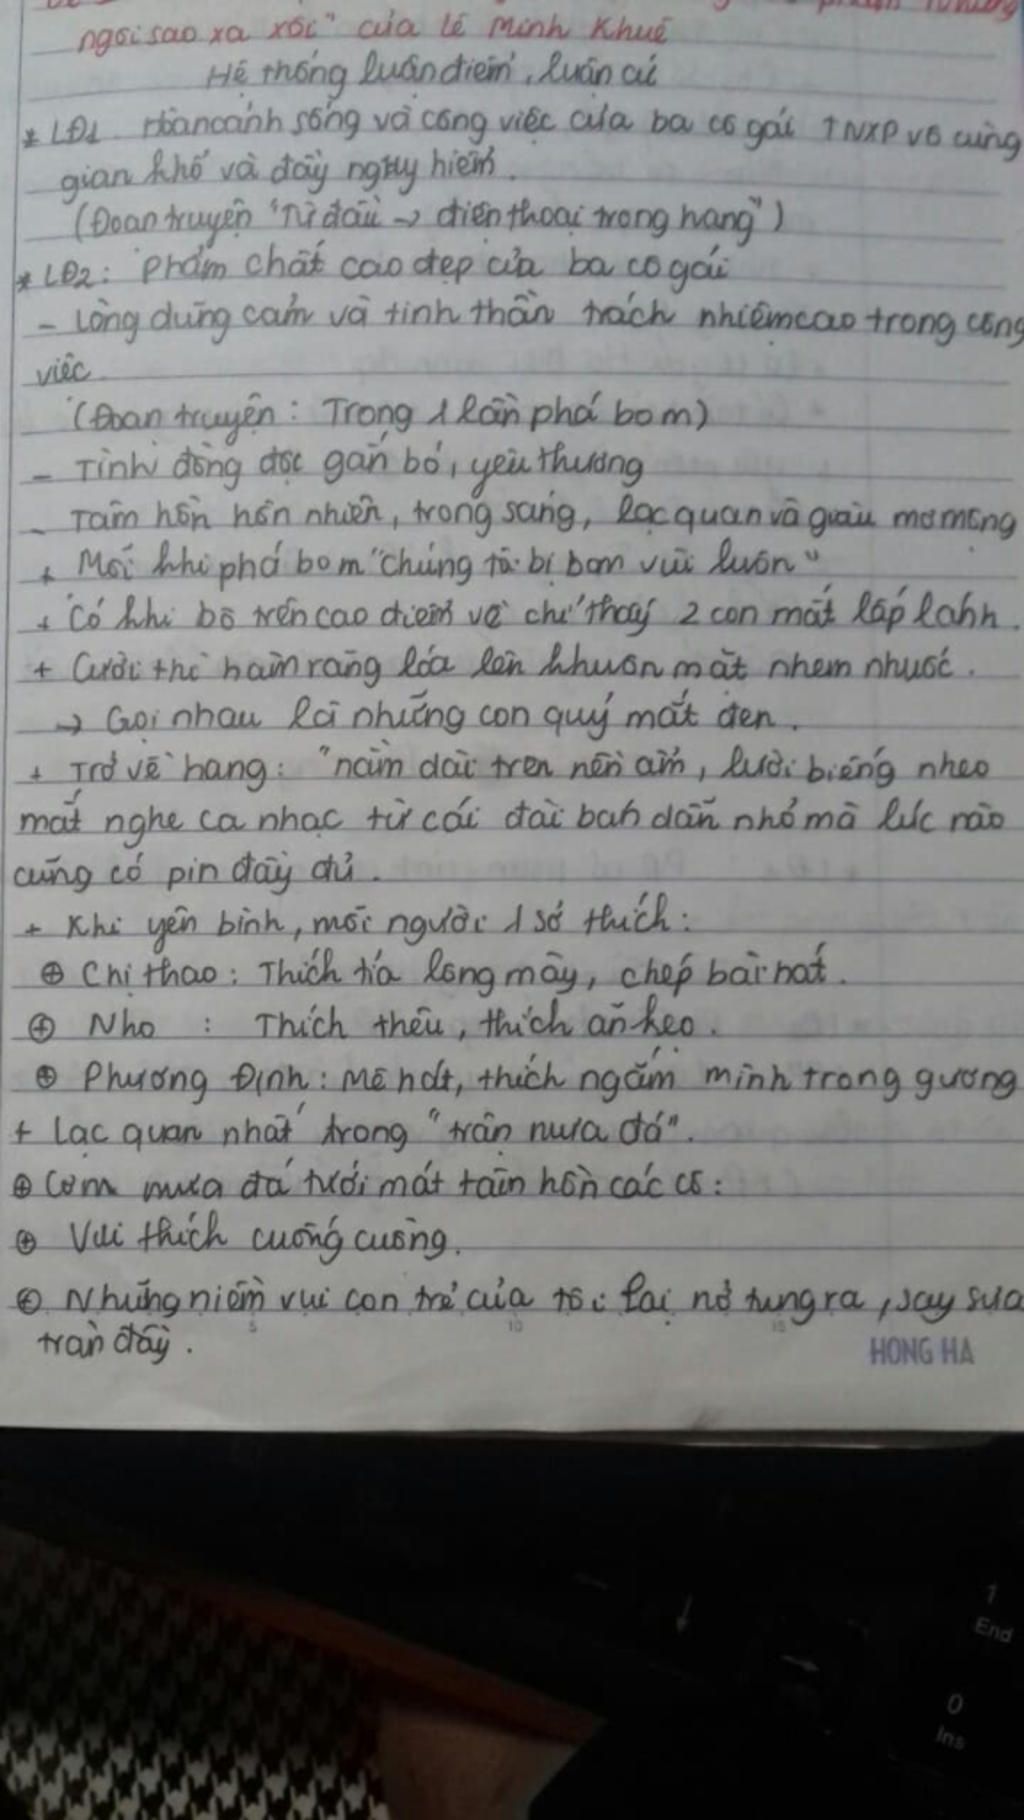 ngôi sao xa xôi" của Lê Minh Khuê
Hệ thống luận điểm, luận cứ
* LĐ1 Hoàn cảnh sống và công việc của ba cô gái TNXP vô cùng
gian khổ và đầy nguy hiểm.
(Đoạn truyện "Từ đầu → điện thoại trong hang")
* LĐ2: Phẩm chất cao đẹp của ba cô gái
- Lòng dũng cảm và tinh thần trách nhiệm cao trong công
việc
(Đoạn truyện: Trong 1 lần phá bom)
- Tình đồng đội gắn bó, yêu thương
- Tâm hồn hồn nhiên, trong sáng, lạc quan và giàu mơ mộng
+ Mỗi khi phá bom "chúng tôi bị bom vùi luôn"
+ Có khi bò trên cao điểm về chỉ thấy 2 con mắt lấp lánh.
+ Cười thì hàm răng lóa lên khuôn mặt nhem nhuốc.
→ Gọi nhau là những con quỷ mắt đen.
+ Trở về hang: "nằm dài trên nền ẩm, lười biếng nheo
mắt nghe ca nhạc từ cái đài bán dẫn nhỏ mà lúc nào
cũng có pin đầy đủ.
+ Khi yên bình, mỗi người 1 sở thích:
⊕ Chị Thao: Thích tỉa lông mày, chép bài hát.
⊕ Nho : Thích thêu, thích ăn kẹo.
⊕ Phương Định: Mê hát, thích ngắm mình trong gương
+ Lạc quan nhất trong "trận mưa đá".
⊕ Cơn mưa đá tưới mát tâm hồn các cô:
⊕ Vui thích cuống cuồng.
⊕ Những niềm vui con trẻ của tôi lại nở tung ra, say sưa
tràn đầy.
5 10 15
HONG HA
1
End
0
Ins